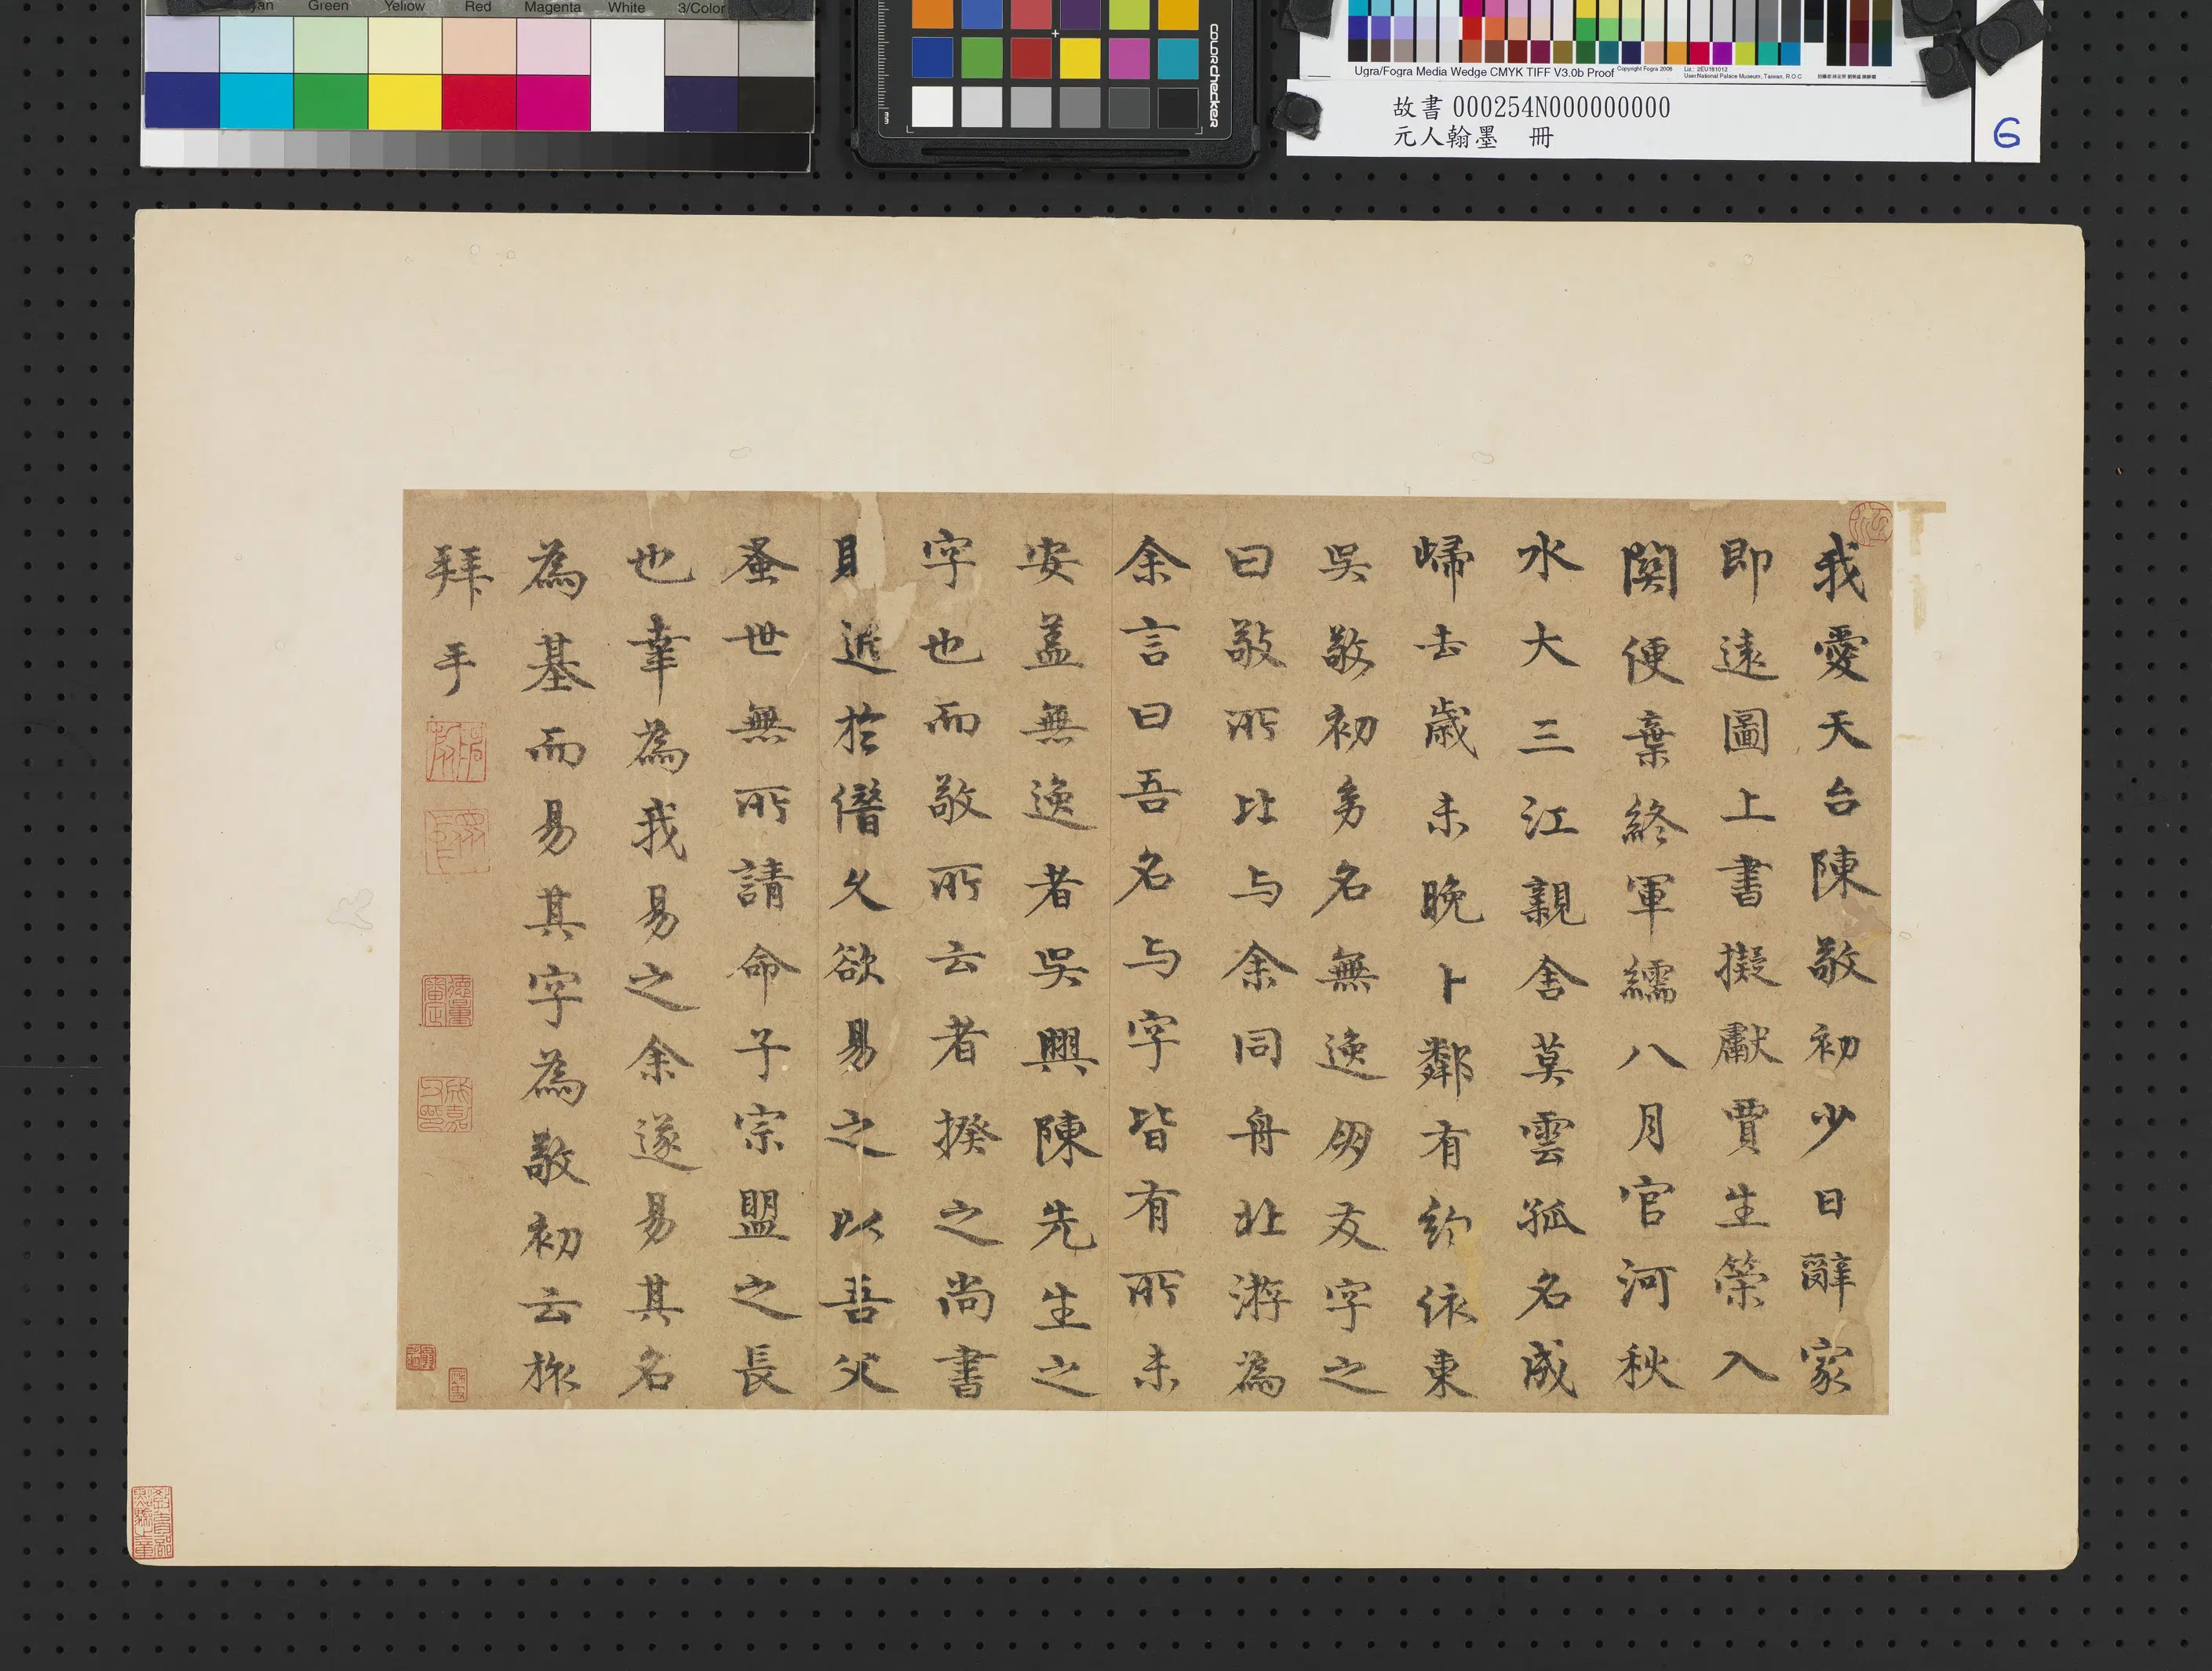 Green Yellow Red Magenta White 3/Color
colorchecker
mm
Ugra/Fogra Media Wedge CMYK TIFF V3.0b Proof
Copyright Fogra 2008
User:National Palace Museum, Taiwan, R.O.C
故書 000254N000000000
元人翰墨 冊
6
我愛天台陳敬初少日辭家
即遠圖上書擬獻賈生策入
関便棄終軍繻八月官河秋
水大三江親舍莫雲孤名成
歸去歲未晚卜鄰有約依東
吳敬初舅名無逸朋友字之
曰敬所比与余同舟北游為
余言曰吾名与字皆有所未
安蓋無逸者吳興陳先生之
字也而敬所云者揆之尚書
且近於僭久欲易之以吾父
蚤世無所請命子宗盟之長
也幸為我易之余遂易其名
為基而易其字為敬初云旅
拜手